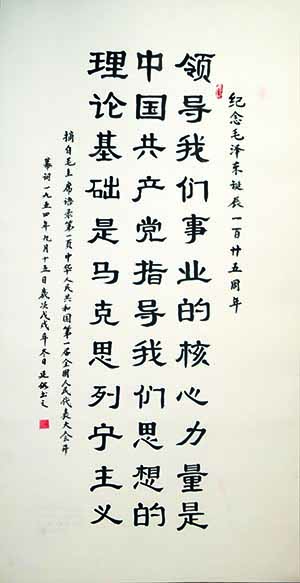 纪念毛泽东诞辰一百廿五周年
领导我们事业的核心力量是
中国共产党指导我们思想的
理论基础是马克思列宁主义
摘自毛主席语录第一页中华人民共和国第一届全国人民代表大会开
幕词一九五四年九月十五日歲次戊戌年冬日书之